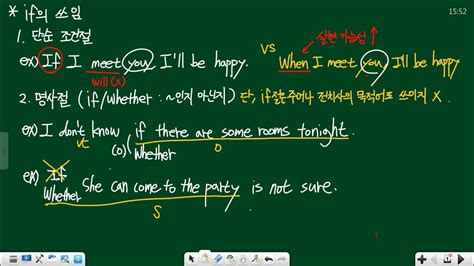 15:52
* if의 쓰임
1. 단순 조건절
실현 가능성↑
ex) If I meet you, I'll be happy. VS When I meet you, I'll be happy
will (x)
2. 명사절 (if/whether : ~인지 아닌지) 단, if절은 주어나 전치사의 목적어로 쓰이지 X.
ex) I don't know if there are some rooms tonight.
vt (o) Whether o
ex) If She can come to the party is not sure.
Whether
S